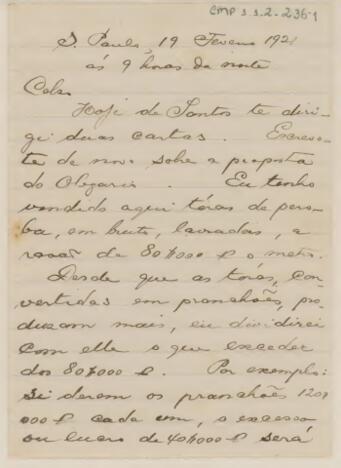 CMP 1.1.2.236-1
S. Paulo, 19 Fevereiro 1921
ás 9 horas da noite
Celso
Hoje de Santos te diri-
gi duas cartas. Escrevo-
te de novo sobre a proposta
do Olegario. Eu tenho
vendido aqui tóras de pero-
ba, em bruto, lavradas, a
rasão de 80$000 o metro.
Desde que as toras, con-
vertidas em pranchões, pro-
dusam mais, eu dividirei
com elle o que exceder
dos 80$000. Por exemplo:
Si derem os pranchões 120$
000 cada um, o excesso
ou lucro de 40$000 será